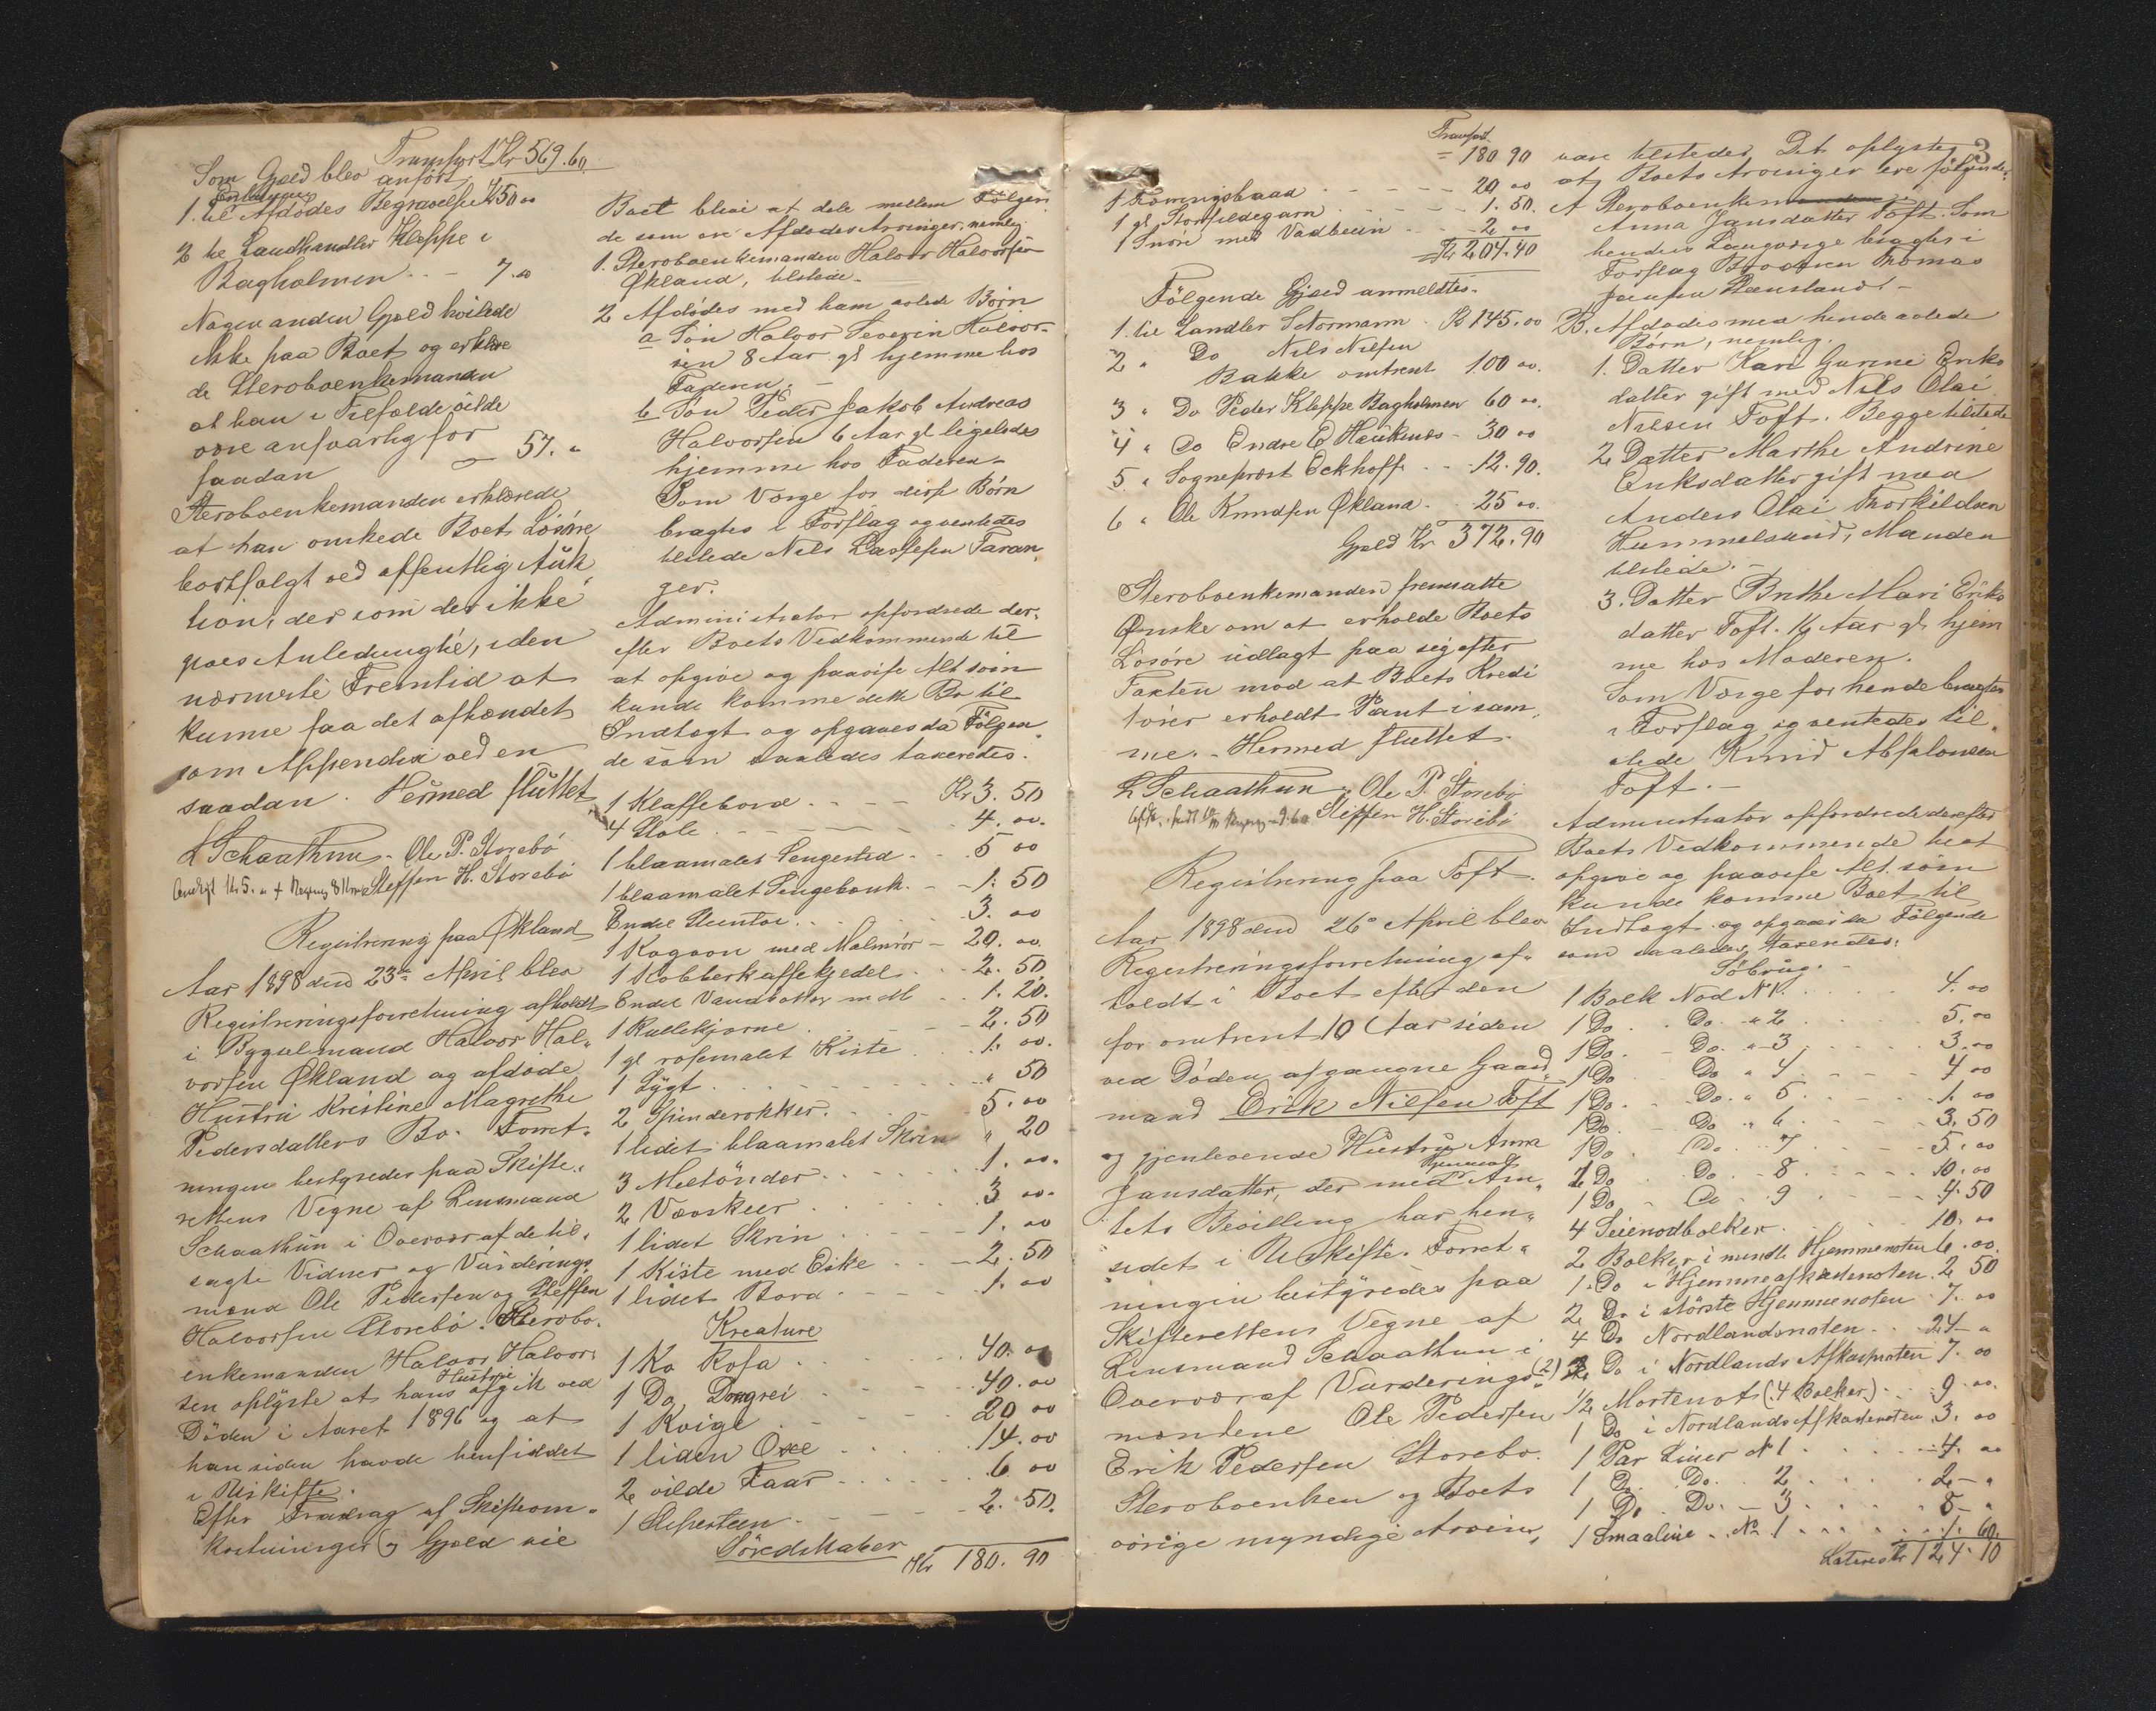 Transport Kr 569.60
Som Gjæld blev anført
Enkens
1. til Afdødes Begravelse Kr 50 00
2 til Landhandler Kleppe i
Bagholmen . . - 7.00
Nogen anden Gjæld hvilede
ikke paa Boet og erklære
de Sterboenkemanden
at han i Tilfælde vilde
være ansvarlig for
saadan - 57. "
Sterboenkemanden erklærede
at han ønskede Boets Løsøre
bortsolgt ved offentlig Auk
tion, der som der ikke
gaves Anledning til, i den
nærmeste Fremtid at
kunne faa det afhændet
som Appendix ved en
saadan. Hermed sluttet
L Schaathun - Ole P. Storebø
Steffen H. Storebø
Registrering paa Økland
Aar 1898 den 23de April blev
Registreringsforretning afholdt
i Bygselmand Halvor Hal-
vorsen Økland og afdøde
Hustru Kristine Magrethe
Pedersdatters Bo. Forret-
ningen bestyredes paa Skifte-
rettens Vegne af Lensmand
Schaathun i Overvær af de til-
sagte Vidner og Vurderings
mænd Ole Pedersen og Steffen
Halvorsen Storebø. Sterbo-
enkemanden Halvor Halvor-
Hustru
sen oplyste at hans afgik ved
Døden i Aaret 1896 og at
han siden havde hensiddet
i Uskifte.
Efter Fradrag af Skifteom-
kostninger og Gjæld vil
Boet blive at dele mellem Følgen
de som ere Afdødes Arvinger, nemlig
1. Sterboenkemanden Halvor Halvorsen
Økland, tilstede -
2 Afdødes med ham avlede Børn
a Søn Halvor Severin Halvor-
sen 8 Aar gl hjemme hos
Faderen. -
b Søn Peder Jakob Andreas
Halvorsen 6 Aar gl ligeledes
hjemme hos Faderen -
Som Værge for disse Børn
bragtes i Forslag og ventedes
tilstede Nils Lassesen Taran
ger.
Administrator opfordrede der-
efter Boets Vedkommende til
at opgive og paavise Alt som
kunde komme dette Bo til
Indtægt og opgaves da Følgen
de som saaledes taxeredes.
1 Klaffebord . . - - Kr 3. 50
4 Stole - - - - 4. 00.
1 blaamalet Sengested . . 5 00
1 blaamalet Sengebænk . - - 1. 50
Endel Stentøi . . 3. 00
1 Kogovn med Malmrør - 20. 00
1 Kobberkaffekjedel . . 2. 50
Endel Vandbøtter m M . . 1. 20.
1 Rullekjærne . - - 2. 50
1 gl rosemalet Kiste . . 1. 00.
1 Lygt . - - - " 50
2 Spinderokker . . 5. 00
1 lidet blaamalet Skrin " 20
3 Meltønder . . . 1. 00.
2 Vævskeer . . . 3 00.
1 lidet Skrin . . 1. 00
1 Kiste med Eske . . - 2. 50
1 lidet Bord . - - - 1. 00
Kreature
1 Ko Rosa . . . 40. 00
1 Do Dragrei . . . 40. 00
1 Kvige . - - - 20 00
1 liden Oxe . . 14. 00
2 vilde Faar . . 6 00
1 Slipesteen . - - - 2. 50.
Søredskaber
Kr 180. 90
Transport
= 180 90
1 Færingsbaad - - - - 20 00
1 gl Storsildegarn - - - 1. 50.
1 Snøre med Vadbeiin - . - 2 00
Kr 204.40
Følgende Gjæld anmeldtes.
1. til Landler S Normann . Kr 145. 00
2 " Do Nils Nilsen
Bakke omtrent 100 00.
3 " Do Peder Kleppe Bagholmen 60 00.
4 " Do Endre E Haukenes - 30 00
5. " Sogneprest Eckhoff . . 12. 90.
6 " Ole Knudsen Økland . 25 00.
Gjæld Kr 372.90
Sterboenkemanden fremsatte
Ønske om at erholde Boets
Løsøre udlagt paa sig efter
Taxten mod at Boets Kredi
torer erholdt Pant i sam-
me. - Hermed sluttet.
L Schaathun, Ole P. Storebø
Steffen H. Storebø
Registrering paa Toft.
Aar 1898 den 26de April blev
Registreringsforretning af-
holdt i Boet efter den
for omtrent 10 Aar siden
ved Døden afgangne Gaard
mand Erik Nilsen Toft
og gjenlevende Hustru Anna
Jansdatter, der med Am-
tets Bevilling har hen-
sidet i Uskifte. Forret-
ningen bestyredes paa
Skifterettens Vegne af
Lensmand Schaathun i
Overvær af Vurderings-
mændene Ole Pedersen
Erik Pedersen Storebø.
Sterboenken og Boets
øvrige myndige Arvin-
3
vare tilstede. Det oplystes
at Boets Arvinger ere følgende:
A Sterboenken
Anna Jansdatter Toft. Som
hendes Laugværge bragtes i
Forslag Broderen Thomas
Jansen
B. Afdødes med hende avlede
Børn, nemlig.
1. Datter Kari Gurine Eriks
datter gift med Nils Olai
Nilsen Toft. Begge tilstede
2 Datter Marthe Andrine
Eriksdatter gift med
Anders Olai Thorkildsen
Hummelsund, Manden
tilstede. -
3. Datter Brithe Mari Eriks
datter Toft. 16 Aar gl. hjem
me hos Moderen.
Som Værge for hende bragtes
i Forslag og ventedes til-
stede Knud Absalonsen
Toft. -
Administrator opfordrede derefter
Boets Vedkommende til at
opgive og paavise Alt som
kunde komme Boet til
Indtægt og opgaves da Følgende
som saaledes taxeredes:
Søbrug. -
1 Bolk Nod No 1. . . . 4. 00
1 Do . . Do. " 2 . . . 5. 00
1 Do. - Do. " 3 . . . 3. 00
1 Do Do " 4 . . . 4 00
1 Do. - Do. " 5 . . . 1. 00
1 Do. - Do " 6 . . . 3. 50
1 Do . Do. . 7 . . . 5. 00
1 Do Do. - 8 . . . 10. 00
1 Do - Do - 9 . . . 4. 50
4 Seienodbolker . . 10. 00
2 Bolker i mindste Hjemmenoten 6. 00.
1. Do i Hjemmeafkastnoten. 2. 50
2. Do i største Hjemmenoten 7. 00
4 Do Nordlandsnoten . . 24 "
(2) Do i Nordlands Afkastnoten 7. 00
1/2 Mortenot (4 Bolker) . . 9 00.
1 Do i Nordlands Afkastnoten 3. 00
1 Par Liner No 1 . . . 4. 00
1 Do . Do. . 2 . . . 2 - "
1 Do . Do. - 3 . . . 5 - "
1 Smaaline . No 1 . . . 1. 60.
Lateres Kr 124. 10